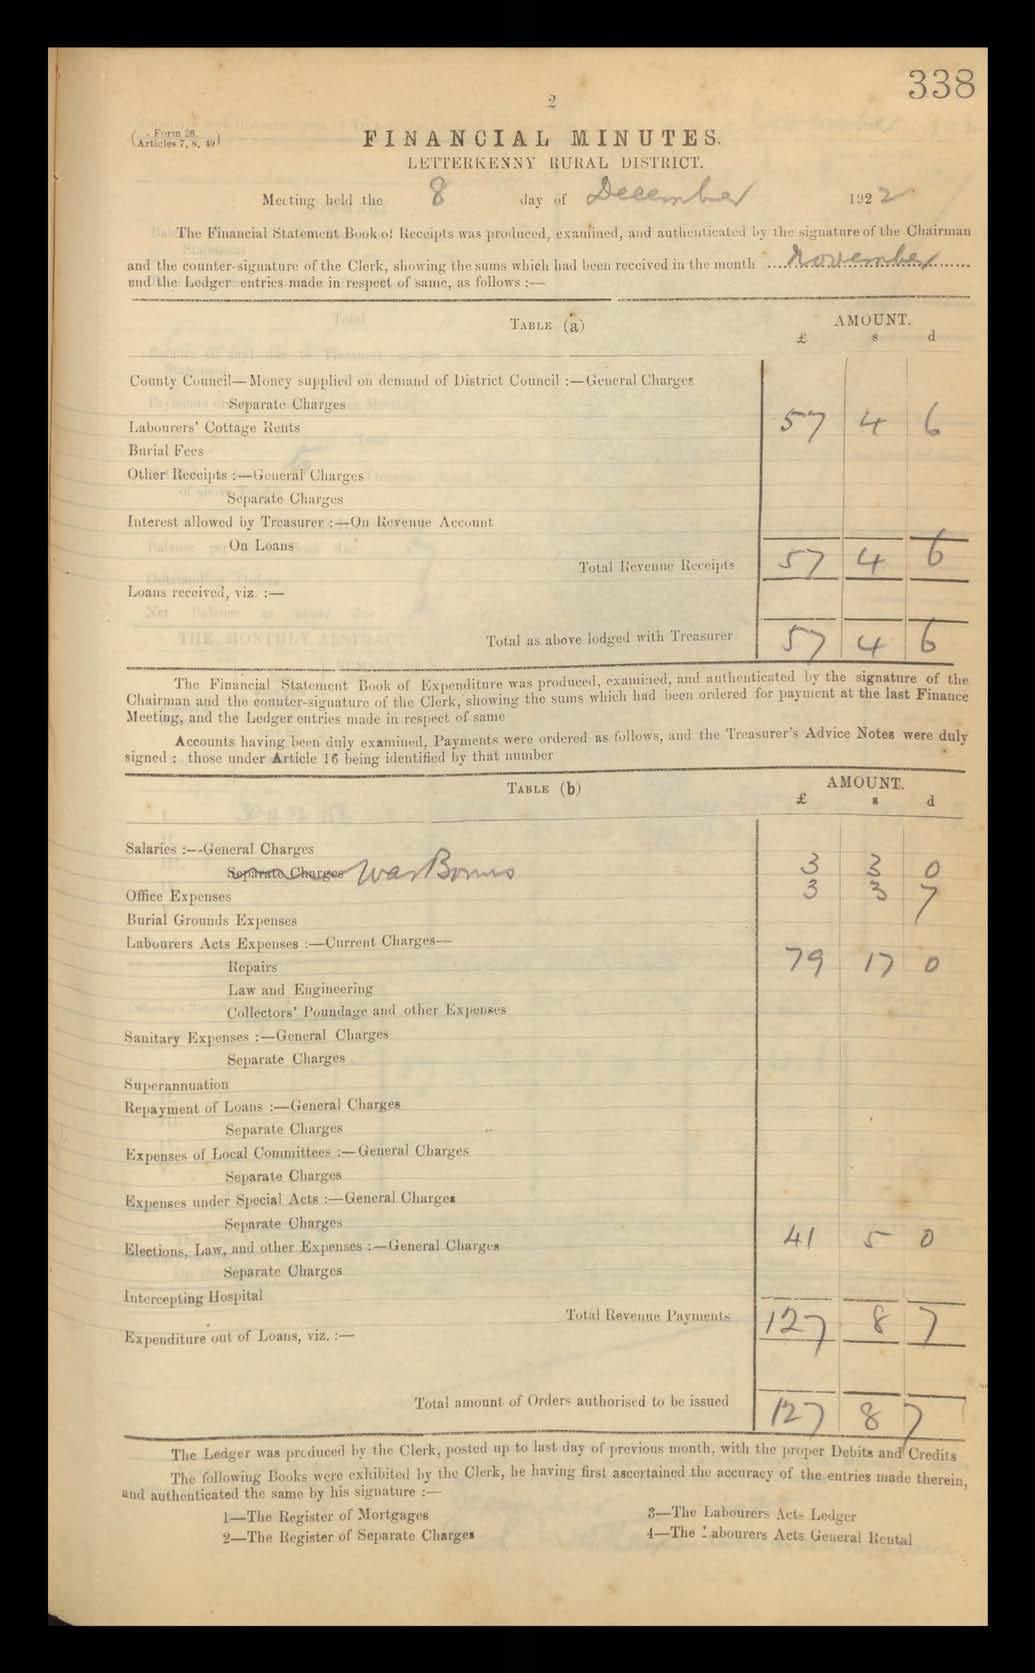 338
2
(Form 26. Articles 7, 8, 49)
FINANCIAL MINUTES.
LETTERKENNY RURAL DISTRICT.
Meeting held the 8 day of December 1922
The Financial Statement Book of Receipts was produced, examined, and authenticated by the signature of the Chairman
and the counter-signature of the Clerk, showing the sums which had been received in the month November
and the Ledger entries made in respect of same, as follows :—
TABLE (a) AMOUNT.
£ s d
County Council—Money supplied on demand of District Council :—General Charges
Separate Charges
Labourers' Cottage Rents 57 4 6
Burial Fees
Other Receipts :—General Charges
Separate Charges
Interest allowed by Treasurer :—On Revenue Account
On Loans
Total Revenue Receipts 57 4 6
Loans received, viz. :—
Total as above lodged with Treasurer 57 4 6
The Financial Statement Book of Expenditure was produced, examined, and authenticated by the signature of the
Chairman and the counter-signature of the Clerk, showing the sums which had been ordered for payment at the last Finance
Meeting, and the Ledger entries made in respect of same
Accounts having been duly examined, Payments were ordered as follows, and the Treasurer's Advice Notes were duly
signed : those under Article 16 being identified by that number
TABLE (b) AMOUNT.
£ s d
Salaries :—General Charges
Separate Charges War Bonus 3 3 0
Office Expenses 3 3 7
Burial Grounds Expenses
Labourers Acts Expenses :—Current Charges—
Repairs 79 17 0
Law and Engineering
Collectors' Poundage and other Expenses
Sanitary Expenses :—General Charges
Separate Charges
Superannuation
Repayment of Loans :—General Charges
Separate Charges
Expenses of Local Committees :—General Charges
Separate Charges
Expenses under Special Acts :—General Charges
Separate Charges
Elections, Law, and other Expenses :—General Charges 41 5 0
Separate Charges
Intercepting Hospital
Total Revenue Payments 127 8 7
Expenditure out of Loans, viz. :—
Total amount of Orders authorised to be issued 127 8 7
The Ledger was produced by the Clerk, posted up to last day of previous month, with the proper Debits and Credits
The following Books were exhibited by the Clerk, he having first ascertained the accuracy of the entries made therein,
and authenticated the same by his signature :—
1—The Register of Mortgages 3—The Labourers Acts Ledger
2—The Register of Separate Charges 4—The Labourers Acts General Rental